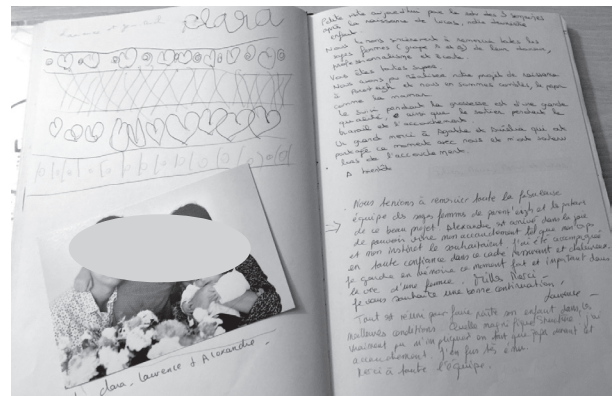 clara
Petite note aujourd'hui pour les 3 semaines
après la naissance de Lucas, notre deuxième
enfant
Nous tenons à remercier toutes les
sages femmes (groupe A et B) de leur travail,
professionnalisme et écoute.
Vous êtes toutes supers.
Nous avons pu réaliser notre projet de naissance
à et nous en sommes comblés, le papa
comme la maman.
Le suivi pendant la grossesse est d'une grande
qualité, ainsi que le soutien pendant le
travail et l'accouchement.
Un grand merci à Agathe et qui ont
partagé ce moment avec nous et m'ont soutenu
lors de l'accouchement.
A bientôt
Nous tenions à remercier toute la fabuleuse
équipe des sages femmes de et la
de ce beau projet. Alexandre est arrivé dans la joie
de pouvoir vivre mon accouchement tel que mon corps
et mon instinct le souhaitaient. J'ai été accompagnée
en toute confiance dans ce cadre et chaleureux
Je garderai en mémoire ce moment fort et important dans
la vie d'une femme. Mille Merci
Je vous souhaite une bonne continuation,
Laurence
Tout est réuni pour faire naître son enfant dans les
meilleures conditions. Quelle magnifique structure ! J'ai
vraiment pu m'impliquer en tant que papa avant et
accouchement. J'en fus très ému.
Merci à toute l'équipe.
clara, Laurence & Alexandre